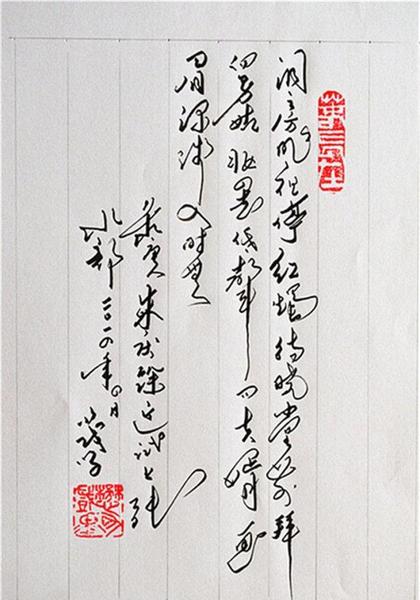 洞房昨夜停红烛待晓堂前拜
舅姑妆罢低声问夫婿画
眉深浅入时无
朱庆馀近试上张
水部 年 月